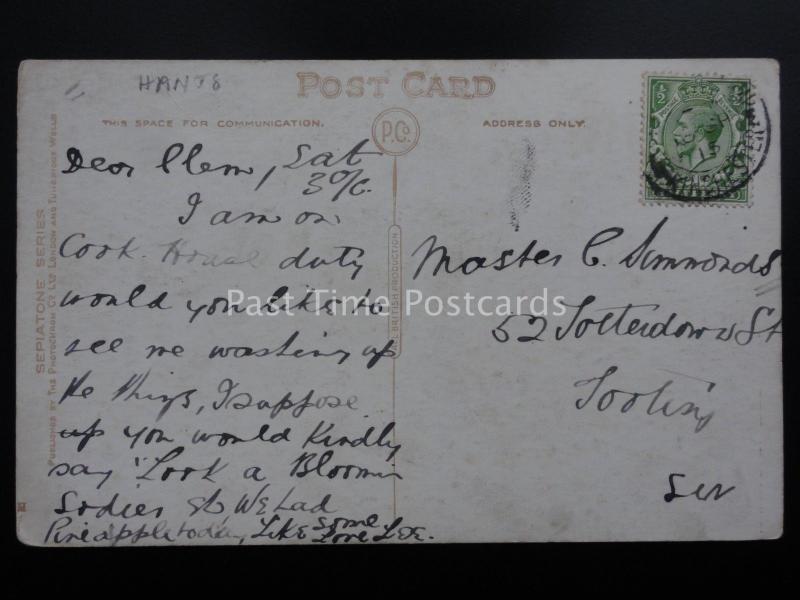 HANTS
POST CARD
THIS SPACE FOR COMMUNICATION.
P.Co.
ADDRESS ONLY.
½ ½
Dear Clem, Sat
30/c
I am on
Cook House duty
would you like to
see me washing up
the things, I suppose
up you would Kindly
say "Look a Bloomin
Sodier We had
Pineapple today, LIKE Some
Love LEE.
Master C. Simmonds
52 Totterdown St
Tooting
SW
SEPIATONE SERIES
PUBLISHED BY THE PHOTOCHROM CO. LTD LONDON AND TUNBRIDGE WELLS
BRITISH PRODUCTION
Past Time Postcards